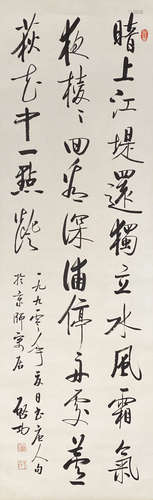 暗上江堤還獨立水風霜氣
夜棱々回看深浦停舟處蘆
荻花中一點燈
一九九零年夏日書唐人句
於京師寓居 啟功